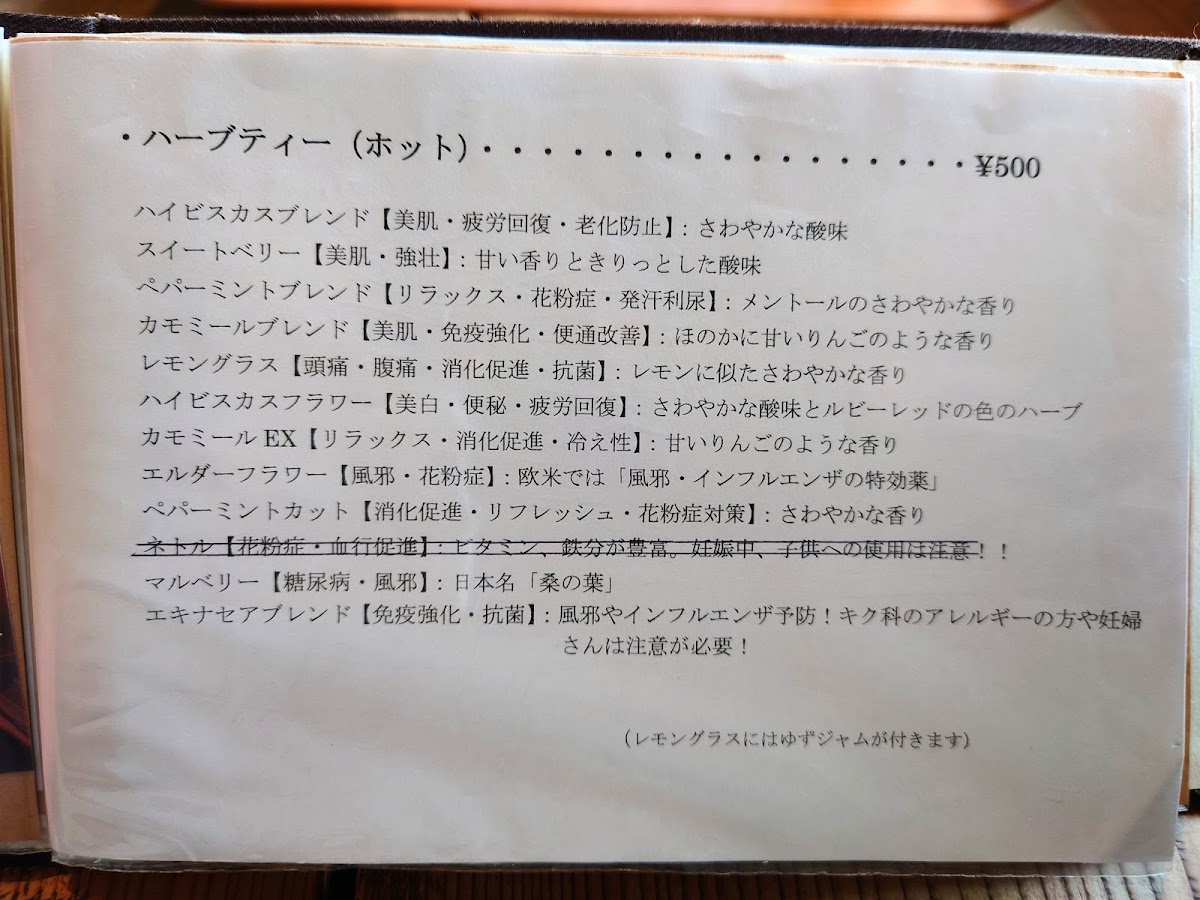 ・ハーブティー（ホット）・・・・・・・・・・・・・・・・・¥500
ハイビスカスブレンド【美肌・疲労回復・老化防止】：さわやかな酸味
スイートベリー【美肌・強壮】：甘い香りときりっとした酸味
ペパーミントブレンド【リラックス・花粉症・発汗利尿】：メントールのさわやかな香り
カモミールブレンド【美肌・免疫強化・便通改善】：ほのかに甘いりんごのような香り
レモングラス【頭痛・腹痛・消化促進・抗菌】：レモンに似たさわやかな香り
ハイビスカスフラワー【美白・便秘・疲労回復】：さわやかな酸味とルビーレッドの色のハーブ
カモミール EX【リラックス・消化促進・冷え性】：甘いりんごのような香り
エルダーフラワー【風邪・花粉症】：欧米では「風邪・インフルエンザの特効薬」
ペパーミントカット【消化促進・リフレッシュ・花粉症対策】：さわやかな香り
ネトル【花粉症・血行促進】：ビタミン、鉄分が豊富。妊娠中、子供への使用は注意！！
マルベリー【糖尿病・風邪】：日本名「桑の葉」
エキナセアブレンド【免疫強化・抗菌】：風邪やインフルエンザ予防！キク科のアレルギーの方や妊婦
さんは注意が必要！
（レモングラスにはゆずジャムが付きます）